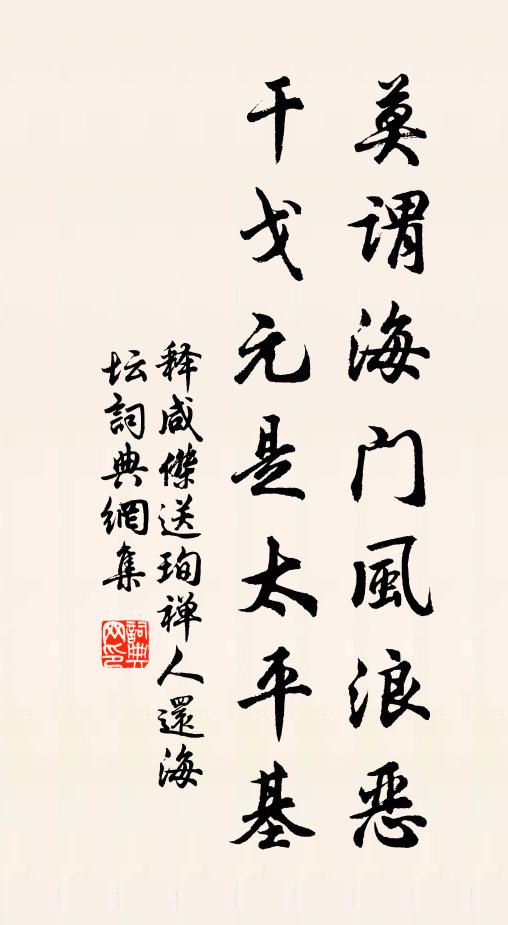 莫謂海门風浪恶
干戈元是太平基
释咸傑送珣禅人還海
坛詞典網集
詞典网印